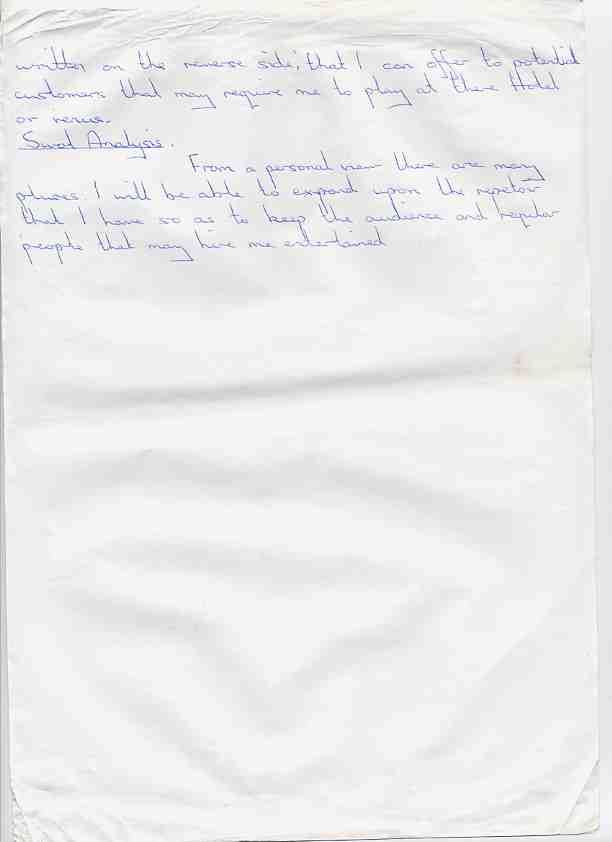 written on the reverse side, that I can offer to potential
customers that may require me to play at there Hotel
or venue.
Swot Analysis.
From a personal view there are many
pluses. I will be able to expand upon the repetoir
that I have so as to keep the audience and regular
people that may hire me entertained